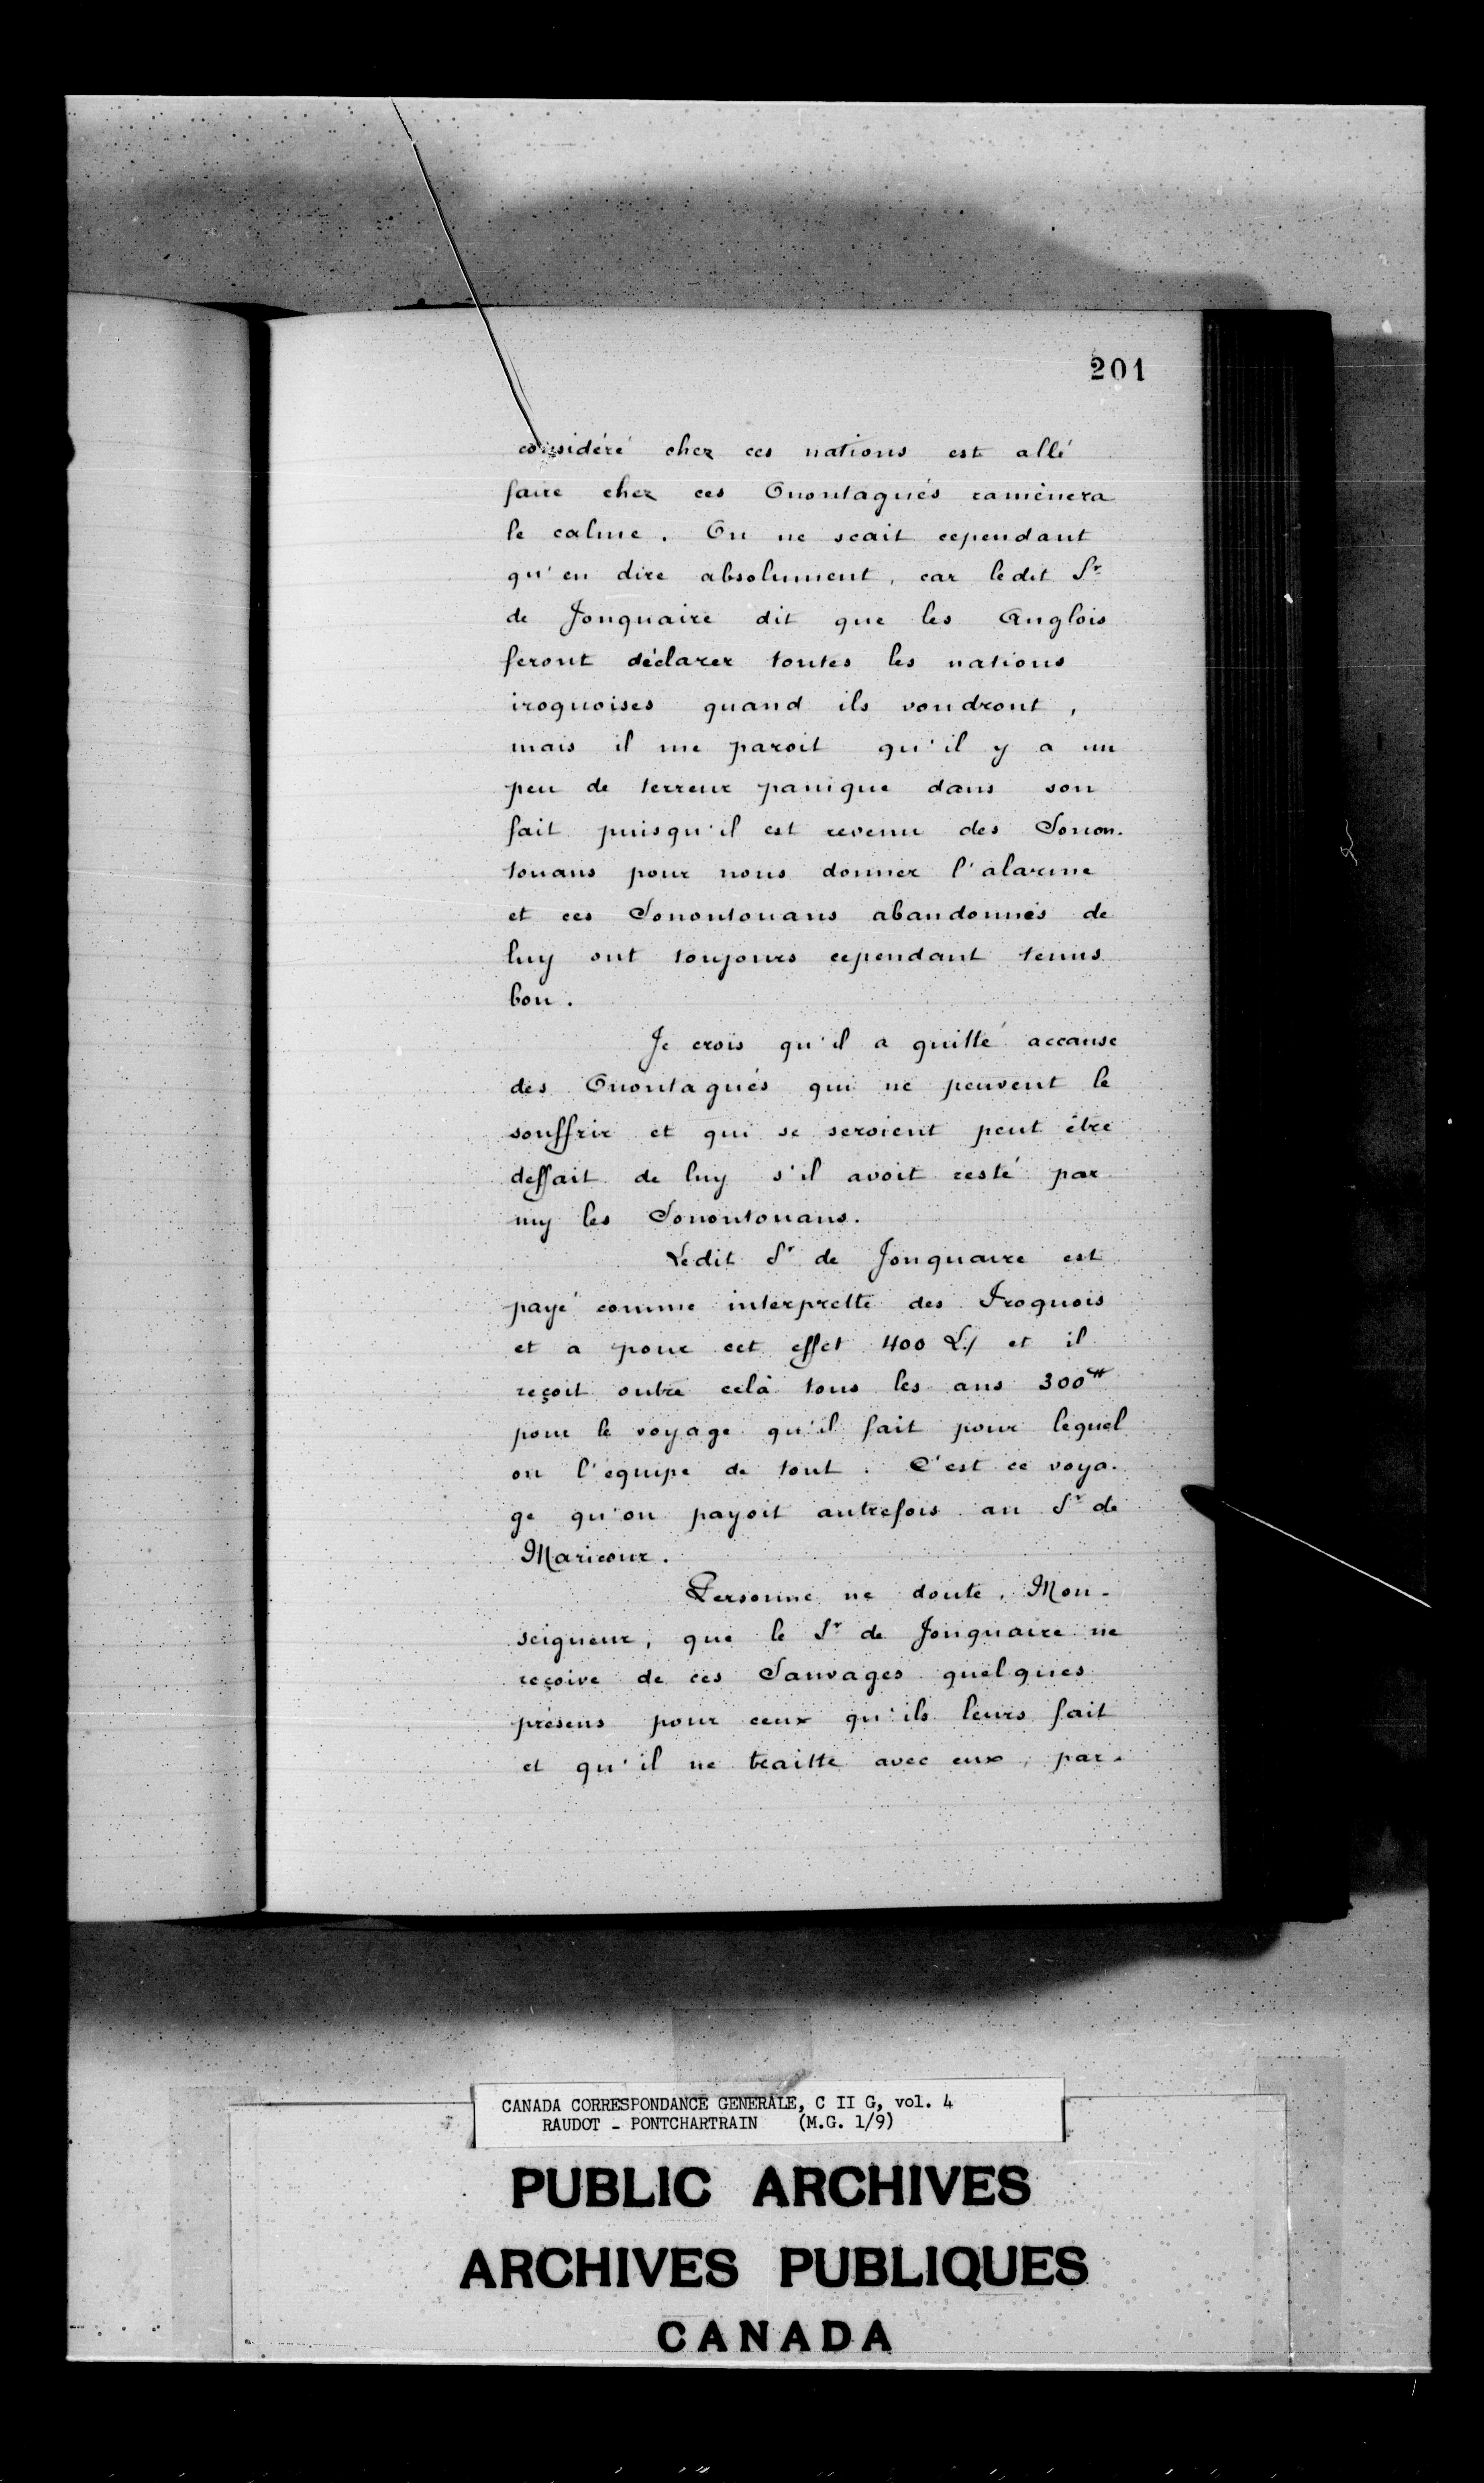 201
considéré chez ces nations est allé
faire chez ces Onontagués ramènera
le calme. On ne scait cependant
qu'en dire absolument, car ledit Sr
de Jonquaire dit que les Anglois
feront déclarer toutes les nations
iroquoises quand ils voudront,
mais il me paroit qu'il y a un
peu de terreur panique dans son
fait puisqu'il est revenu des Sonon-
touans pour nous donner l'alarme
et ces Sonontouans abandonnés de
luy ont toujours cependant tenus
bon.
Je crois qu'il a quitté accause
des Onontagués qui ne peuvent le
souffrir et qui se seroient peut être
deffait de luy s'il avoit resté par
my les Sonontouans.
Ledit Sr de Jonquaire est
payé comme interprette des Iroquois
et a pour cet effet 400 L/ et il
reçoit outre celà tous les ans 300#
pour le voyage qu'il fait pour lequel
on l'equipe de tout. C'est ce voya-
ge qu'on payoit autrefois au Sr de
Maricour.
Personne ne doute, Mon-
seigneur, que le Sr de Jonquaire ne
reçoive de ces Sauvages quelques
présens pour ceux qu'ils leurs fait
et qu'il ne traitte avec eux, par-
CANADA CORRESPONDANCE GENERALE, C II G, vol. 4
RAUDOT - PONTCHARTRAIN (M.G. 1/9)
PUBLIC ARCHIVES
ARCHIVES PUBLIQUES
CANADA